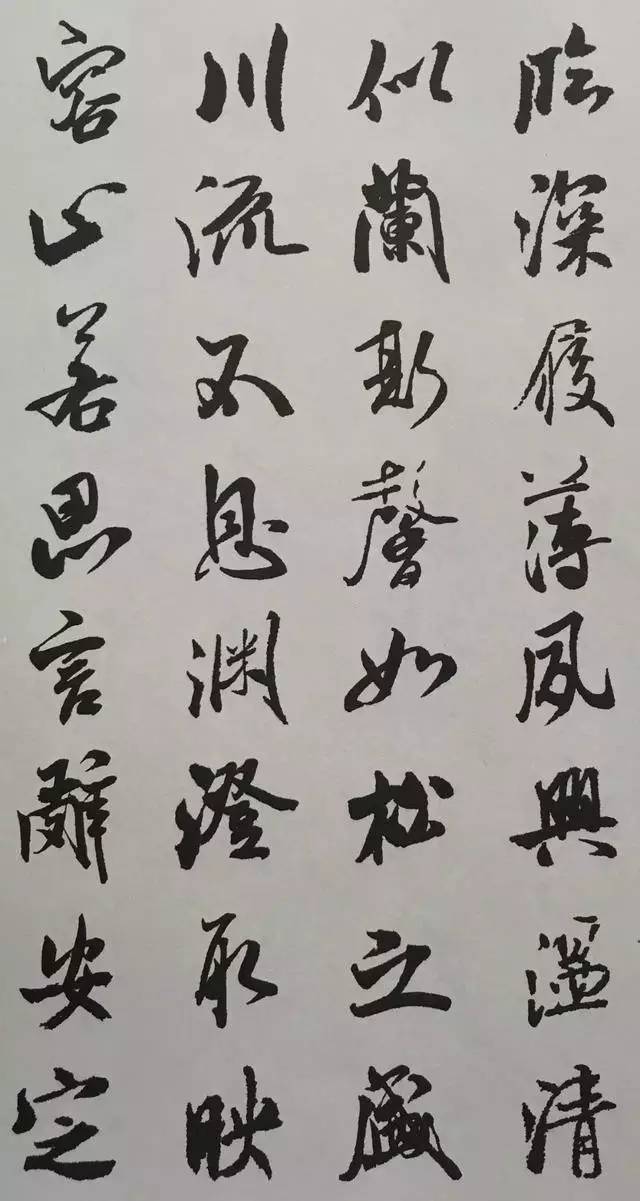 臨深履薄夙興溫清
似蘭斯馨如松之盛
川流不息淵澄取映
容止若思言辭安定